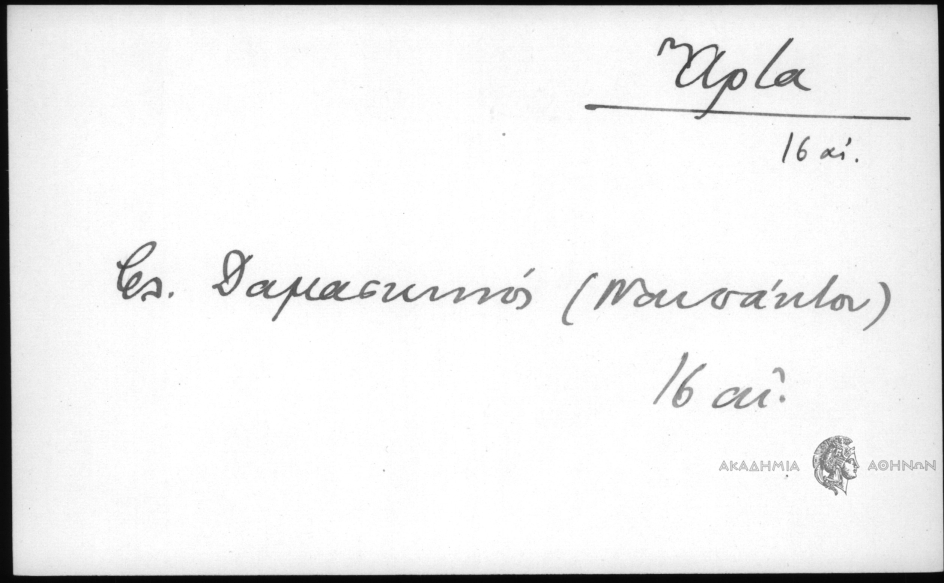 Ἄρτα
16 αἰ.
Ἐπ. Δαμασκηνός (Ναυπάκτου)
16 αἰ.
ΑΚΑΔΗΜΙΑ ΑΘΗΝΩΝ